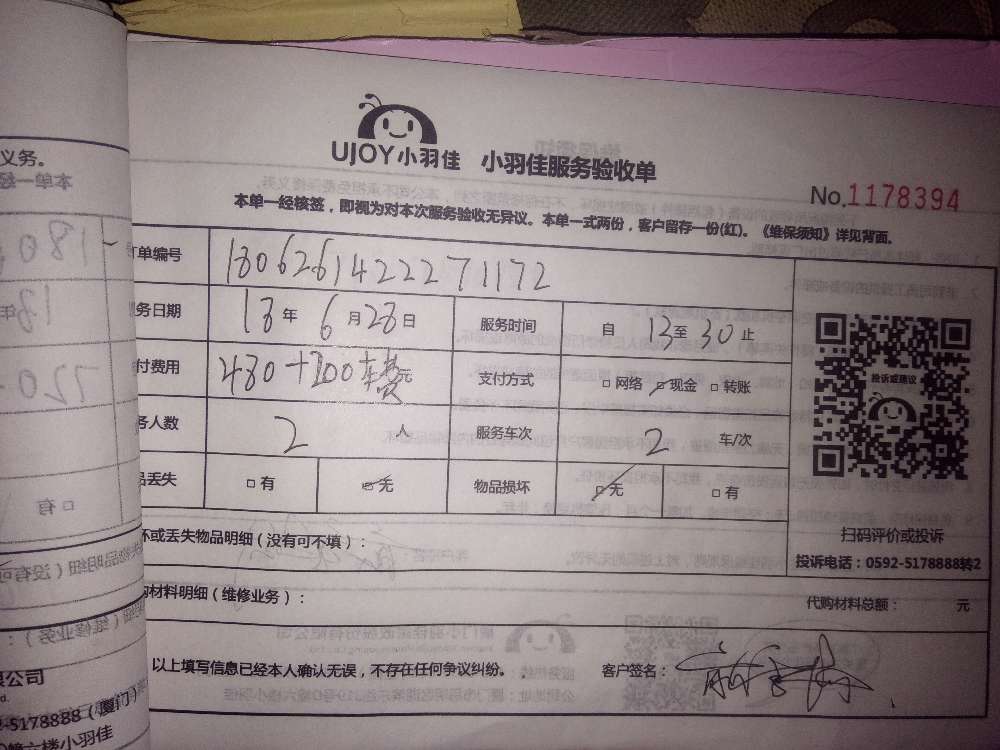 UJOY小羽佳 小羽佳服务验收单
No.1178394
本单一经核签，即视为对本次服务验收无异议。本单一式两份，客户留存一份(红)。《维保须知》详见背面。
订单编号 1806261422271172
务日期 18年6月28日 服务时间 自13至30止
付费用 480+200车费元 支付方式 网络 现金 转账
务人数 2人 服务车次 2车/次
品丢失 有 无 物品损坏 无 有
坏或丢失物品明细(没有可不填)：
购材料明细(维修业务)：
代购材料总额： 元
投诉或建议
扫码评价或投诉
投诉电话：0592-5178888转2
以上填写信息已经本人确认无误，不存在任何争议纠纷。 客户签名：
义务。
限公司
-5178888(厦门)
第六楼小羽佳